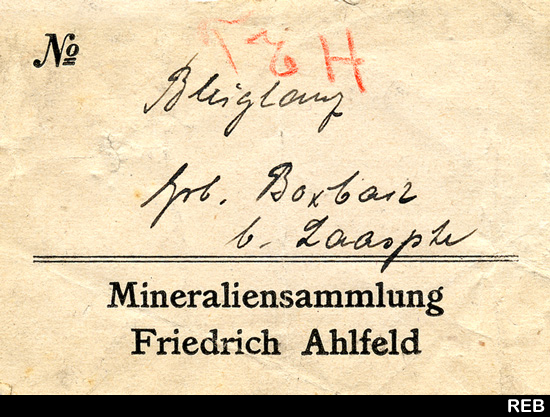 No
Bleiglanz
Grb. Boxbach
b. Laasphe
Mineraliensammlung
Friedrich Ahlfeld
REB